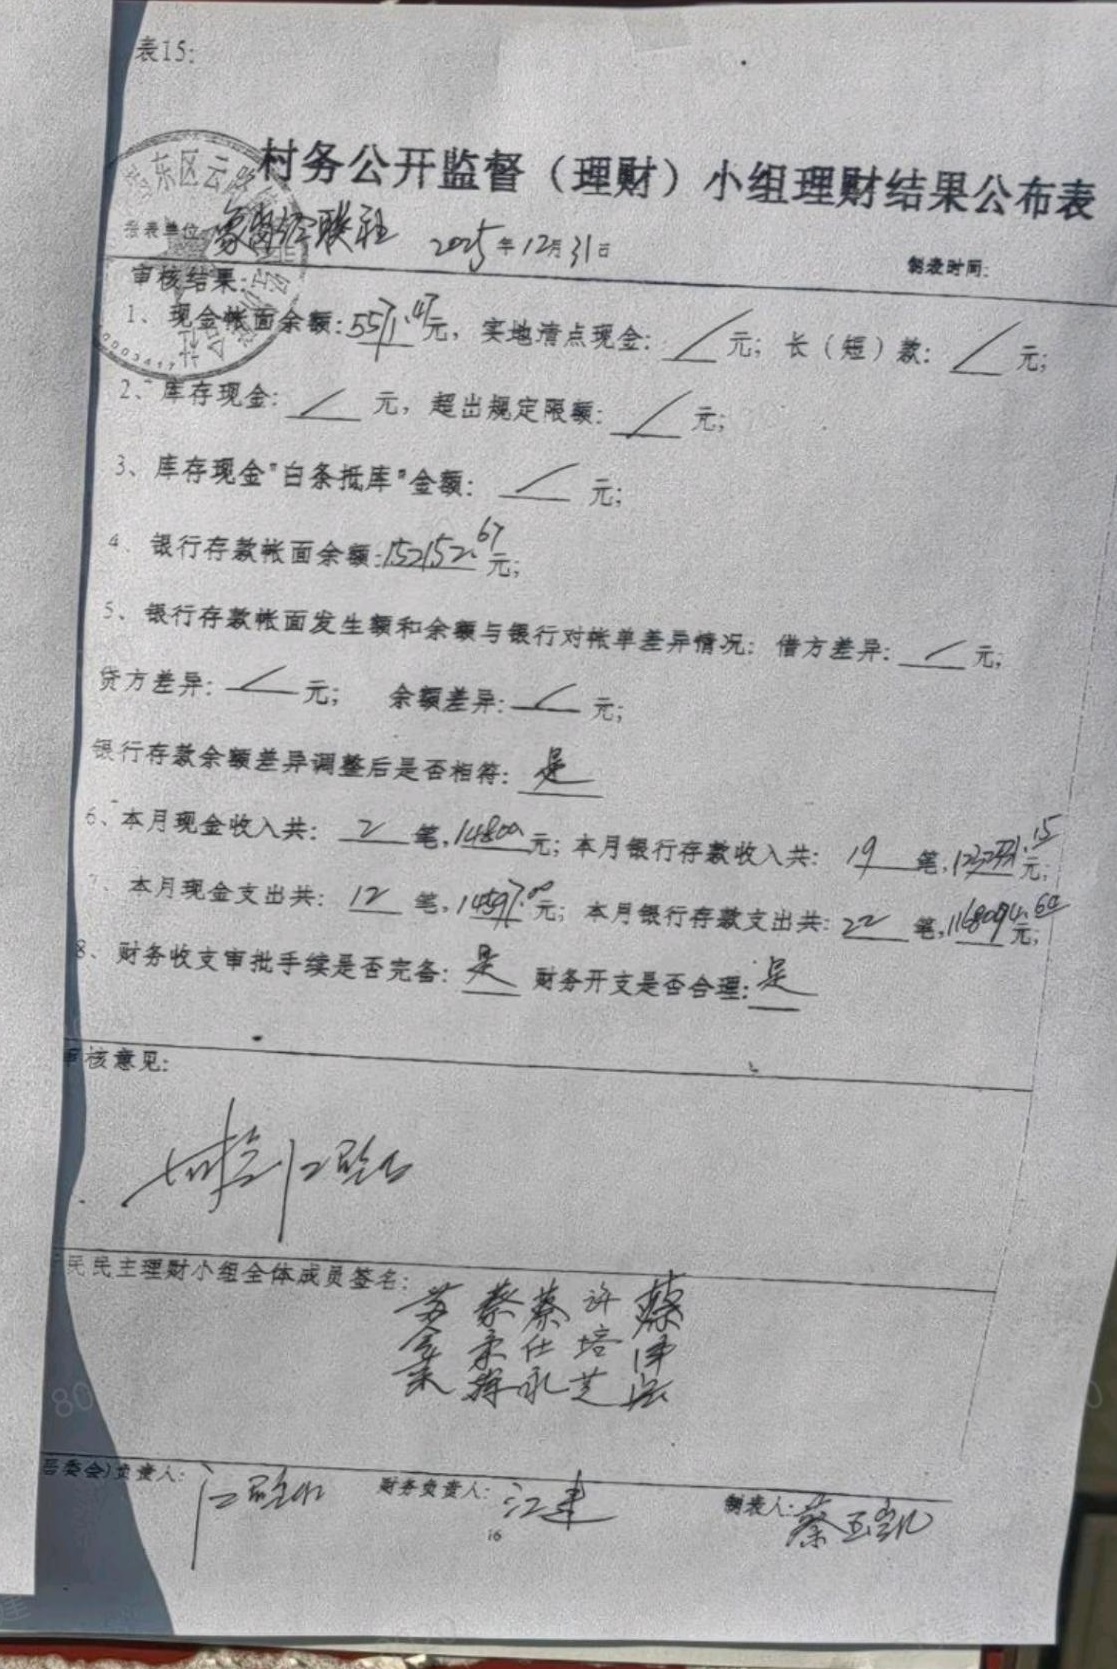 表15:
村务公开监督（理财）小组理财结果公布表
报表单位 经联社 2025年12月31日 制表时间:
审核结果:
1、现金帐面余额:5571.47元，实地清点现金: / 元; 长（短）款: / 元;
2、库存现金: / 元，超出规定限额: / 元;
3、库存现金"白条抵库"金额: / 元;
4、银行存款帐面余额:152152.67元;
5、银行存款帐面发生额和余额与银行对帐单差异情况: 借方差异: / 元,
贷方差异: / 元; 余额差异: / 元;
银行存款余额差异调整后是否相符: 是
6、本月现金收入共: 2 笔,14800元; 本月银行存款收入共: 19 笔, 元;
7、本月现金支出共: 12 笔,14597.00元; 本月银行存款支出共: 22 笔,1168094.60元;
8、财务收支审批手续是否完备: 是 财务开支是否合理: 是
审核意见:
民民主理财小组全体成员签名:
苏 蔡 蔡 许 蔡
金 柔 仕 培 泽
来 永 芝
委会)负责人: 江 财务负责人: 江 制表人: 蔡玉凯
16